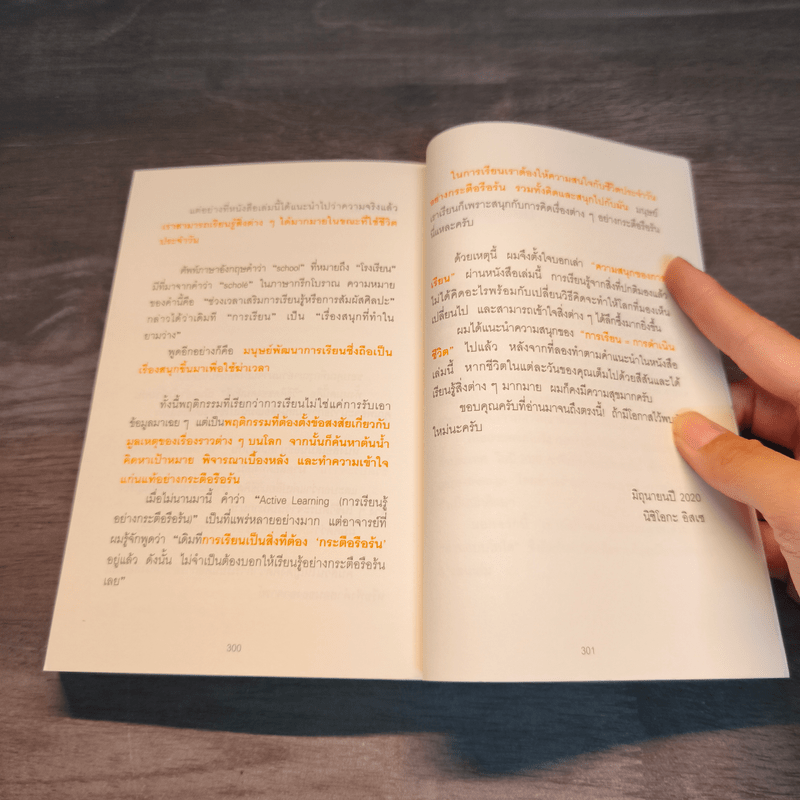 แต่อย่างที่หนังสือเล่มนี้ได้แนะนำไปว่าความจริงแล้ว
เราสามารถเรียนรู้สิ่งต่าง ๆ ได้มากมายในขณะที่ใช้ชีวิต
ประจำวัน
ศัพท์ภาษาอังกฤษคำว่า “school” ที่หมายถึง “โรงเรียน”
มีที่มาจากคำว่า “scholé” ในภาษากรีกโบราณ ความหมาย
ของคำนี้คือ “ช่วงเวลาเสริมการเรียนรู้หรือการสัมผัสศิลปะ”
กล่าวได้ว่าเดิมที “การเรียน” เป็น “เรื่องสนุกที่ทำใน
ยามว่าง”
พูดอีกอย่างก็คือ มนุษย์พัฒนาการเรียนซึ่งถือเป็น
เรื่องสนุกขึ้นมาเพื่อใช้ฆ่าเวลา
ทั้งนี้พฤติกรรมที่เรียกว่าการเรียนไม่ใช่แค่การรับเอา
ข้อมูลมาเฉย ๆ แต่เป็นพฤติกรรมที่ต้องตั้งข้อสงสัยเกี่ยวกับ
มูลเหตุของเรื่องราวต่าง ๆ บนโลก จากนั้นก็ค้นหาต้นน้ำ
คิดหาเป้าหมาย พิจารณาเบื้องหลัง และทำความเข้าใจ
แก่นแท้อย่างกระตือรือร้น
เมื่อไม่นานมานี้ คำว่า “Active Learning (การเรียนรู้
อย่างกระตือรือร้น)” เป็นที่แพร่หลายอย่างมาก แต่อาจารย์ที่
ผมรู้จักพูดว่า “เดิมทีการเรียนเป็นสิ่งที่ต้อง ‘กระตือรือร้น’
อยู่แล้ว ดังนั้น ไม่จำเป็นต้องบอกให้เรียนรู้อย่างกระตือรือร้น
เลย”
300
ในการเรียนเราต้องให้ความสนใจกับชีวิตประจำวัน
อย่างกระตือรือร้น รวมทั้งคิดและสนุกไปกับมัน มนุษย์
เราเรียนก็เพราะสนุกกับการคิดเรื่องต่าง ๆ อย่างกระตือรือร้น
นี่แหละครับ
ด้วยเหตุนี้ ผมจึงตั้งใจบอกเล่า “ความสนุกของการ
เรียน” ผ่านหนังสือเล่มนี้ การเรียนรู้จากสิ่งที่ปกติมองแล้ว
ไม่ได้คิดอะไรพร้อมกับเปลี่ยนวิธีคิดจะทำให้โลกที่มองเห็น
เปลี่ยนไป และสามารถเข้าใจสิ่งต่าง ๆ ได้ลึกซึ้งมากยิ่งขึ้น
ผมได้แนะนำความสนุกของ “การเรียน = การดำเนิน
ชีวิต” ไปแล้ว หลังจากที่ลองทำตามคำแนะนำในหนังสือ
เล่มนี้ หากชีวิตในแต่ละวันของคุณเต็มไปด้วยสีสันและได้
เรียนรู้สิ่งต่าง ๆ มากมาย ผมก็คงมีความสุขมากครับ
ขอบคุณครับที่อ่านมาจนถึงตรงนี้! ถ้ามีโอกาสไว้พบ
ใหม่นะครับ
มิถุนายนปี 2020
นิชิโอกะ อิสเซ
301